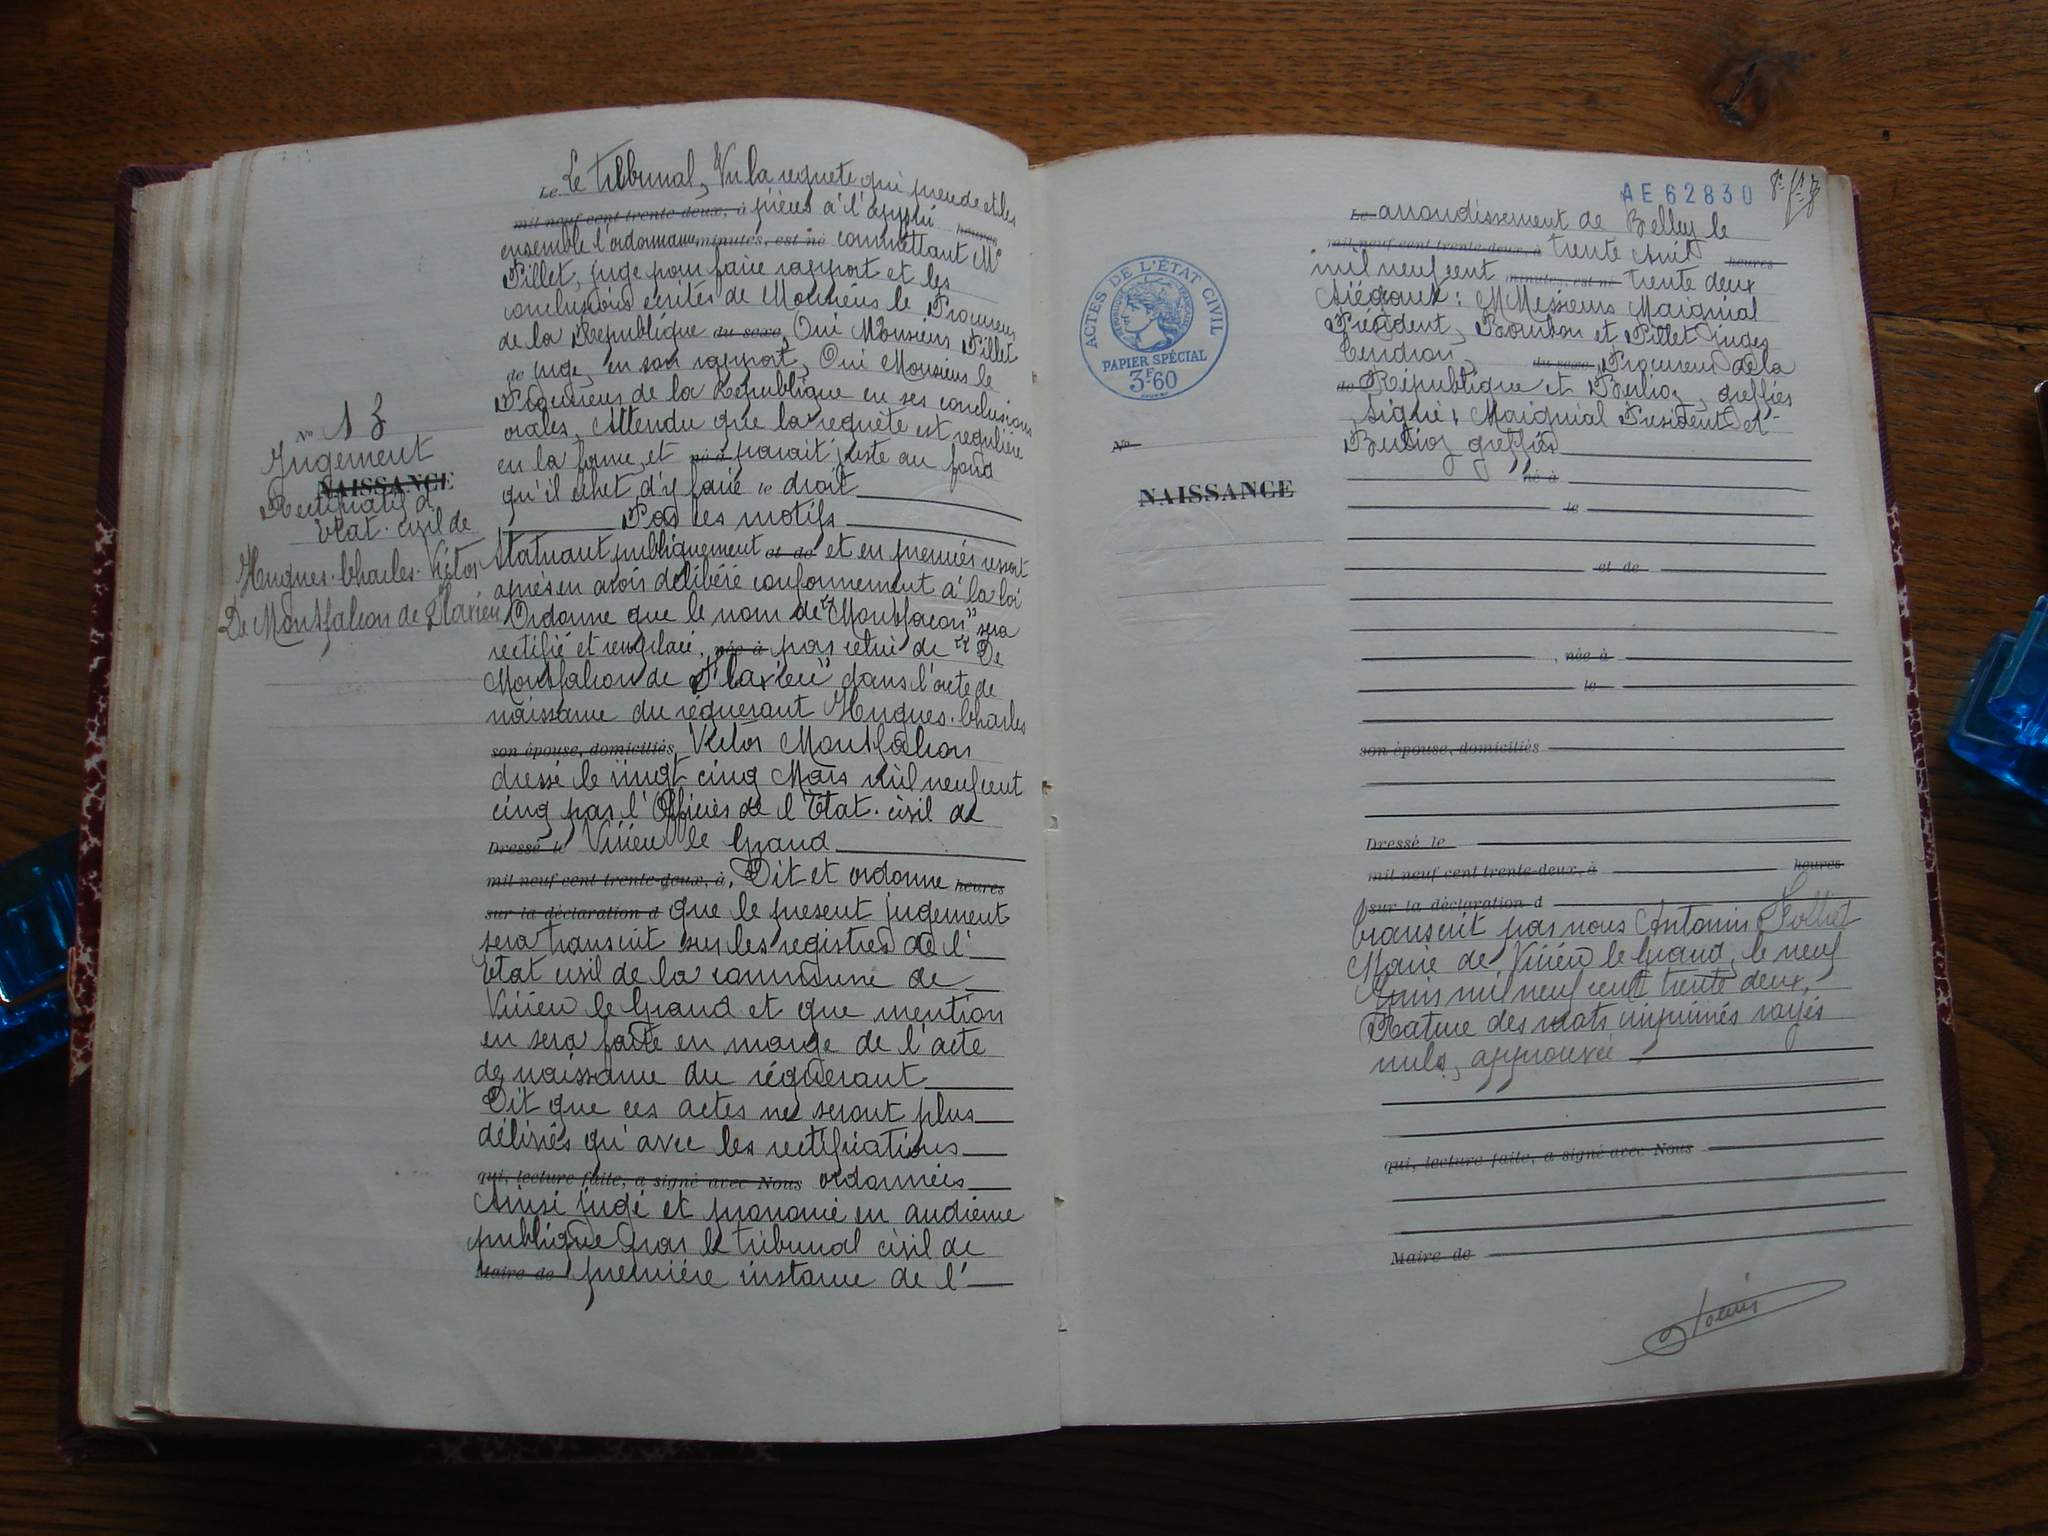 Le Le tribunal, Vu la requête qui précede et les
mil neuf cent trente-deux, à pièces à l'appui heures
ensemble l'ordonnance minutes, est né commettant Mr
Pillet, juge pour faire rapport et les
conclusions écrites de Monsieur le Procureur
de la République du sexe, Oui Monsieur Pillet
de juge, en son rapport, Oui Monsieur le
Procureur de la République en ses conclusions
orales, Attendu que la requête est régulière
en la forme, et né à parait juste au fond
qu'il echet d'y faire le droit
Par ces motifs
Statuant publiquement et de et en premier ressort
après en avoir délibéré conformement à la loi
Ordonne que le nom de "Montfalcon" sera
rectifié et remplacé, née à par celui de "De
Montfalcon de Flaxieu" dans l'acte de
naissance du réquerant Hugues. Charles
son épouse, domiciliés Victor Montfalcon
dressé le vingt cinq Mars mil neuf cent
cinq par l'Officier de l'Etat. civil de
Dressé le Virieu le Grand
mil neuf cent trente-deux, à, Dit et ordonne heures
sur la déclaration d que le present jugement
sera transcrit sur les registres de l'
Etat civil de la commune de
Virieu le Grand et que mention
en sera faite en marge de l'acte
de naissance du réquerant
Dit que ces actes ne seront plus
délivrés qu'avec les rectifications
qui, lecture faite, a signé avec Nous ordonnées
Ainsi jugé et prononcé en audience
publique par le tribunal civil de
Maire de première instance de l'
No 13
Jugement
NAISSANCE
Rectificatif d'
Etat. civil de
Hugues. Charles. Victor
De Montfalcon de Flaxieu
AE 62830
Le arrondissement de Belley le
mil neuf cent trente-deux, à trente Avril heures
mil neuf cent minutes, est né trente deux
Siégeaux: MMessieurs Maignial
Président, Bourbon et Pillet juges
du sexe Procureur de la
de République et Berlioz, greffier
Signé: Maignial Président et
Berlioz greffier
né à
le
et de
, née à
le
son épouse, domiciliés
Dressé le
mil neuf cent trente-deux, à heures
sur la déclaration d
Transcrit par nous Antonin
Maire de Virieu le Grand, le neuf
Juin mil neuf cent trente deux,
Rature des mots imprimés rayés
nuls, approuvée
qui, lecture faite, a signé avec Nous
Maire de
ACTES DE L'ÉTAT CIVIL
PAPIER SPÉCIAL
3F60
No
NAISSANCE